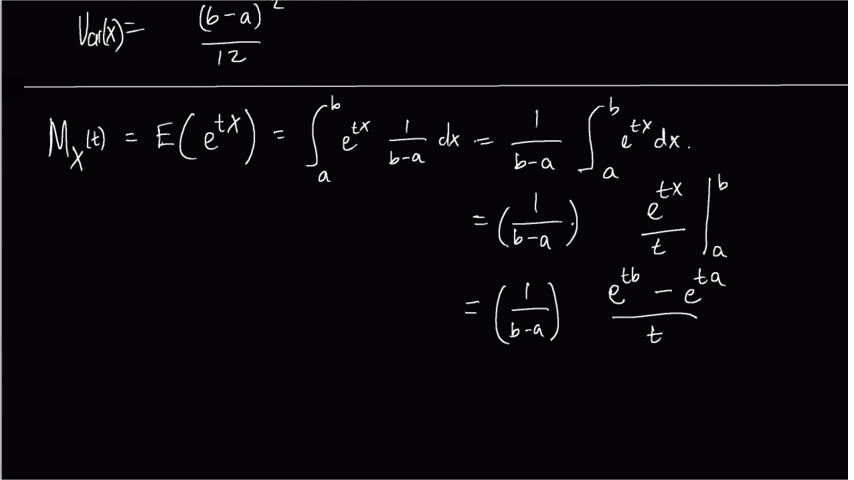 Var(x) = (b-a)^2 / 12
M_X(t) = E(e^{tX}) = ∫_a^b e^{tx} 1/(b-a) dx = 1/(b-a) ∫_a^b e^{tx} dx.
= (1/(b-a)·) e^{tx}/t |_a^b
= (1/(b-a)) (e^{tb} - e^{ta})/t